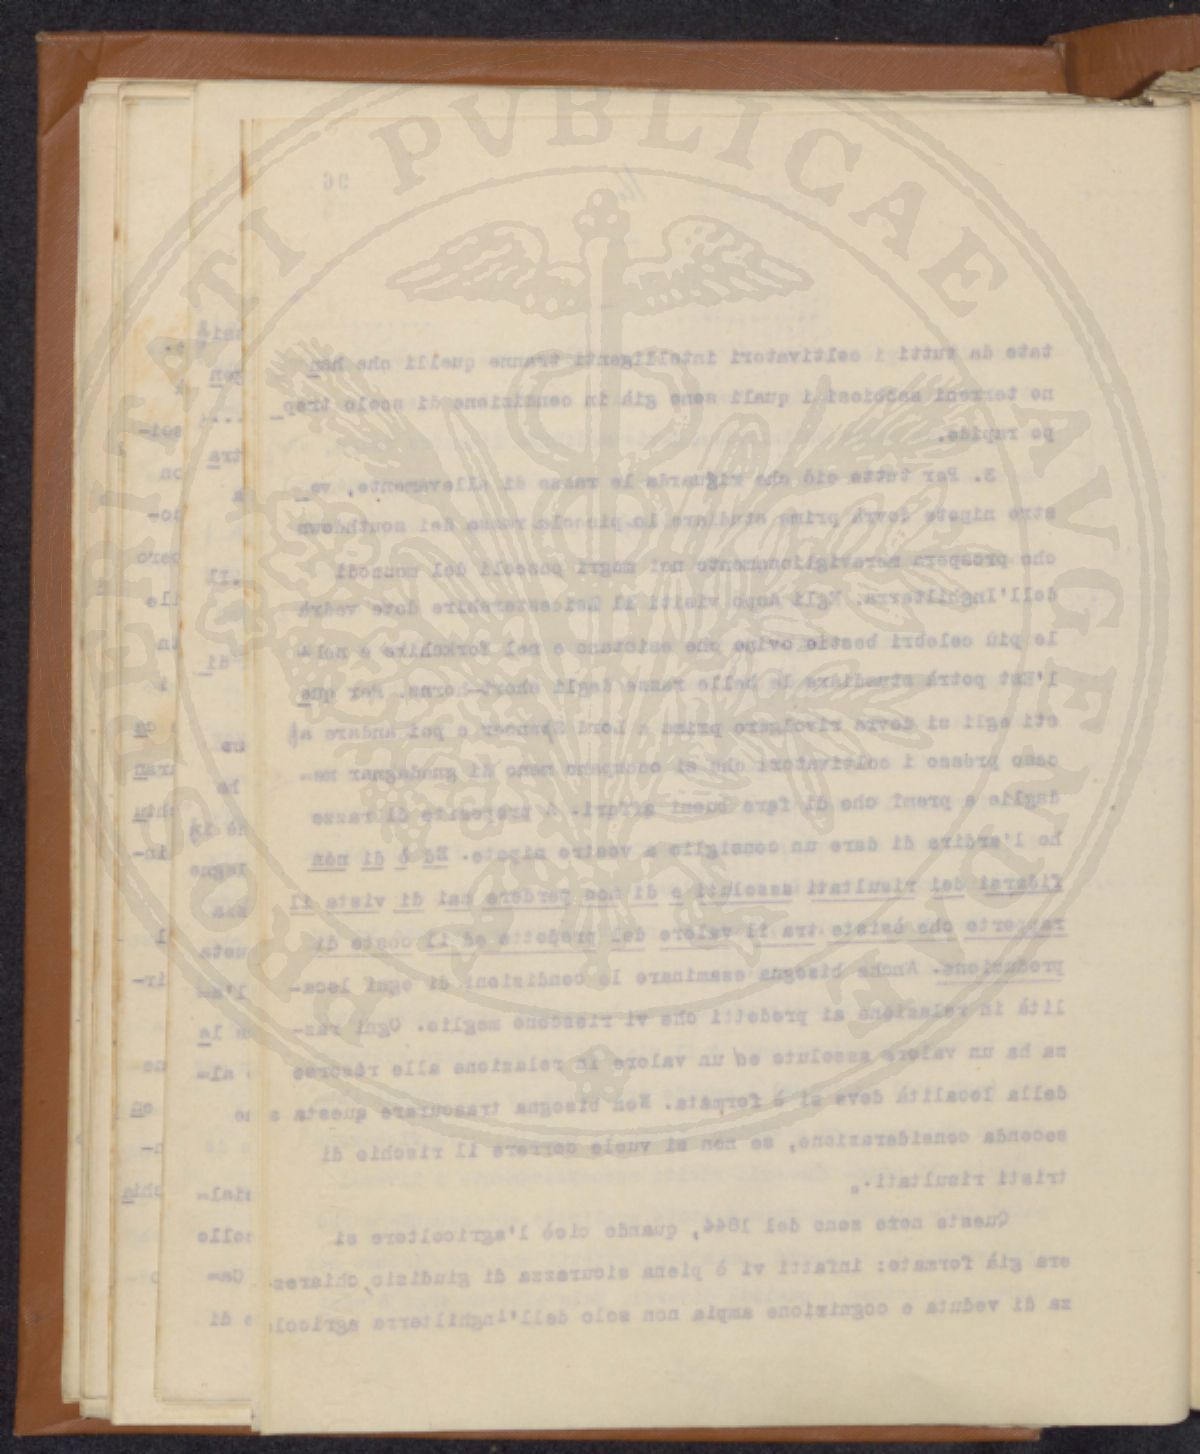 PROSPERITATI PVBLICAE AVGENDAE
96
tate da tutti i coltivatori intelligenti tranne quelli che han
no terreni sabbiosi i quali sono già in condizione di scolo trop
po rapido.
3. Per tutto ciò che riguarda le razze di allevamento, vo_
stro nipote dovrà prima studiare la piccola razza dei southdown
che prospera meravigliosamente nei magri pascoli del
dell'Inghilterra. Egli dopo visiti il Leicestershire dove vedrà
le più celebri bestie ovine che esistano e nel Yorkshire e nell
l'Est potrà studiare le belle razze degli short-horns. Per que
sti egli si dovrà rivolgere prima a Lord Spencer e poi andare a
caso presso i coltivatori che si occupano meno di guadagnar me-
daglie e premi che di fare buoni affari. A proposito di razze
ho l'ardire di dare un consiglio a vostro nipote. Ed è di non
fidarsi dei risultati assoluti e di non perdere mai di vista il
rapporto che esiste tra il valore del prodotto ed il costo di
produzione. Anche bisogna esaminare le condizioni di ogni loca-
lità in relazione ai prodotti che vi riescono meglio. Ogni raz-
za ha un valore assoluto ed un valore in relazione alle risorse
della località dove si è formata. Non bisogna trascurare questa
seconda considerazione, se non si vuole correre il rischio di
tristi risultati.„
Queste note sono del 1844, quando cioè l'agricoltore si
era già formato: infatti vi è piena sicurezza di giudizio, chiarez-
za di veduta e cognizione ampia non solo dell'Inghilterra agricola